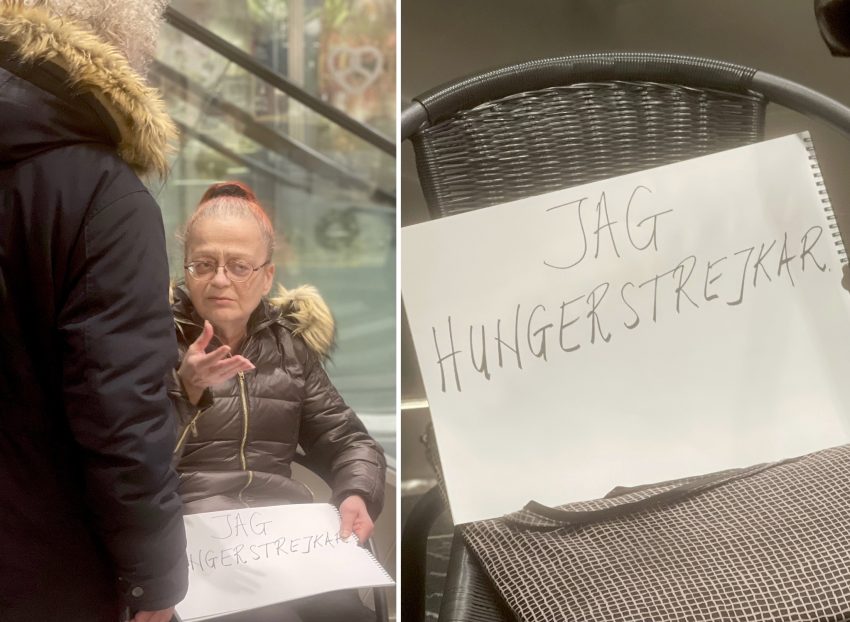 JAG
NGERSTREJKAR.
JAG
HUNGERSTREJKAR.